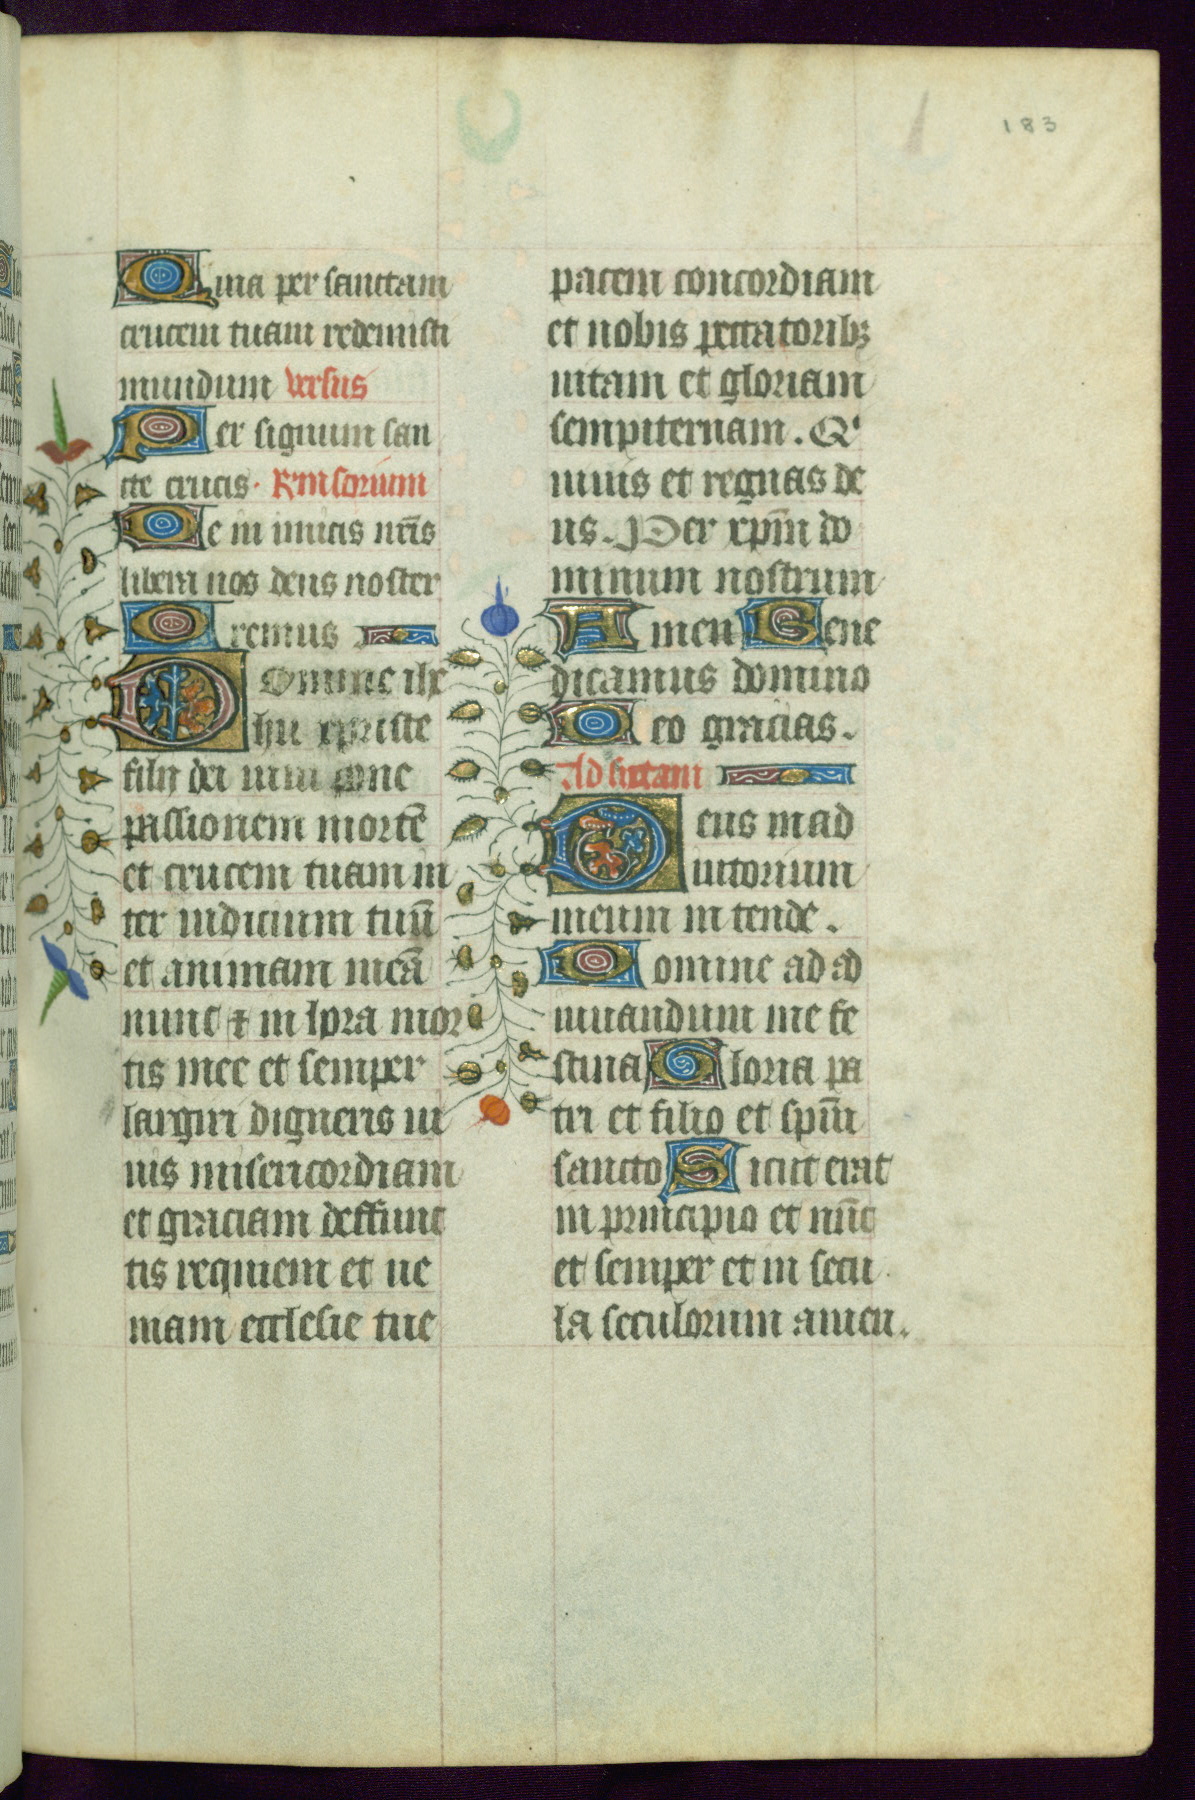 183
Quia per sanctam
crucem tuam redemisti
mundum versus
Per signum san
cte crucis. Rinsorium
De in imicis nr̄is
libera nos deus noster
Oremus
Domine ihe
hu xpriste
filij dei uiui pone
passionem mortē
et crucem tuam in
ter iudicium tuū
et animam meā
nunc et in hora mor
tis mee et semper
largiri digneris ui
uis misericordiam
et graciam deffunc
tis requiem et ue
niam ecclesie tue
pacem concordiam
et nobis peccatorib;
uitam et gloriam
sempiternam. Q'
uiuis et regnas de
us. Per xpm̄ do
minum nostrum
Amen Bene
dicamus domino
Deo gracias.
Ad sextam
Deus in ad
iutorium
meum in tende.
Domine ad ad
iuuandum me fe
stina Gloria pa
tri et filio et spūi
sancto Sicut erat
in principio et nūc
et semper et in secu
la seculorum amen.